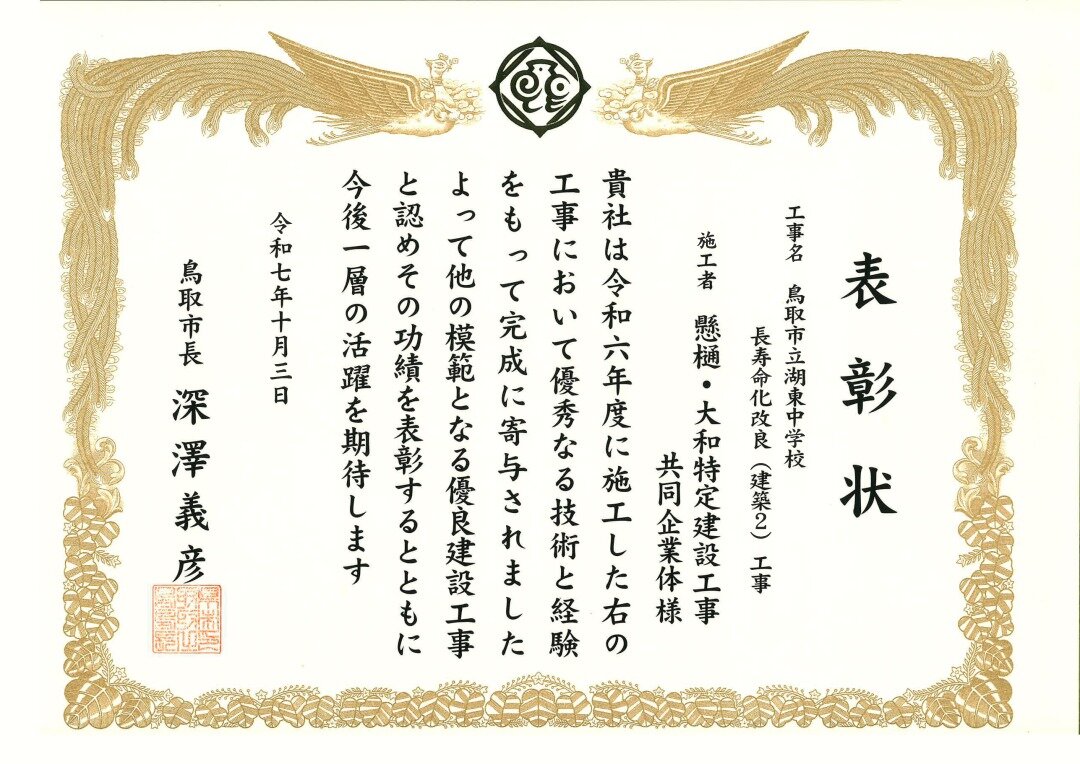 表彰状
工事名 鳥取市立湖東中学校
長寿命化改良（建築２）工事
施工者 懸樋・大和特定建設工事
共同企業体様
貴社は令和六年度に施工した右の
工事において優秀なる技術と経験
をもって完成に寄与されました
よって他の模範となる優良建設工事
と認めその功績を表彰するとともに
今後一層の活躍を期待します
令和七年十月三日
鳥取市長 深澤義彦